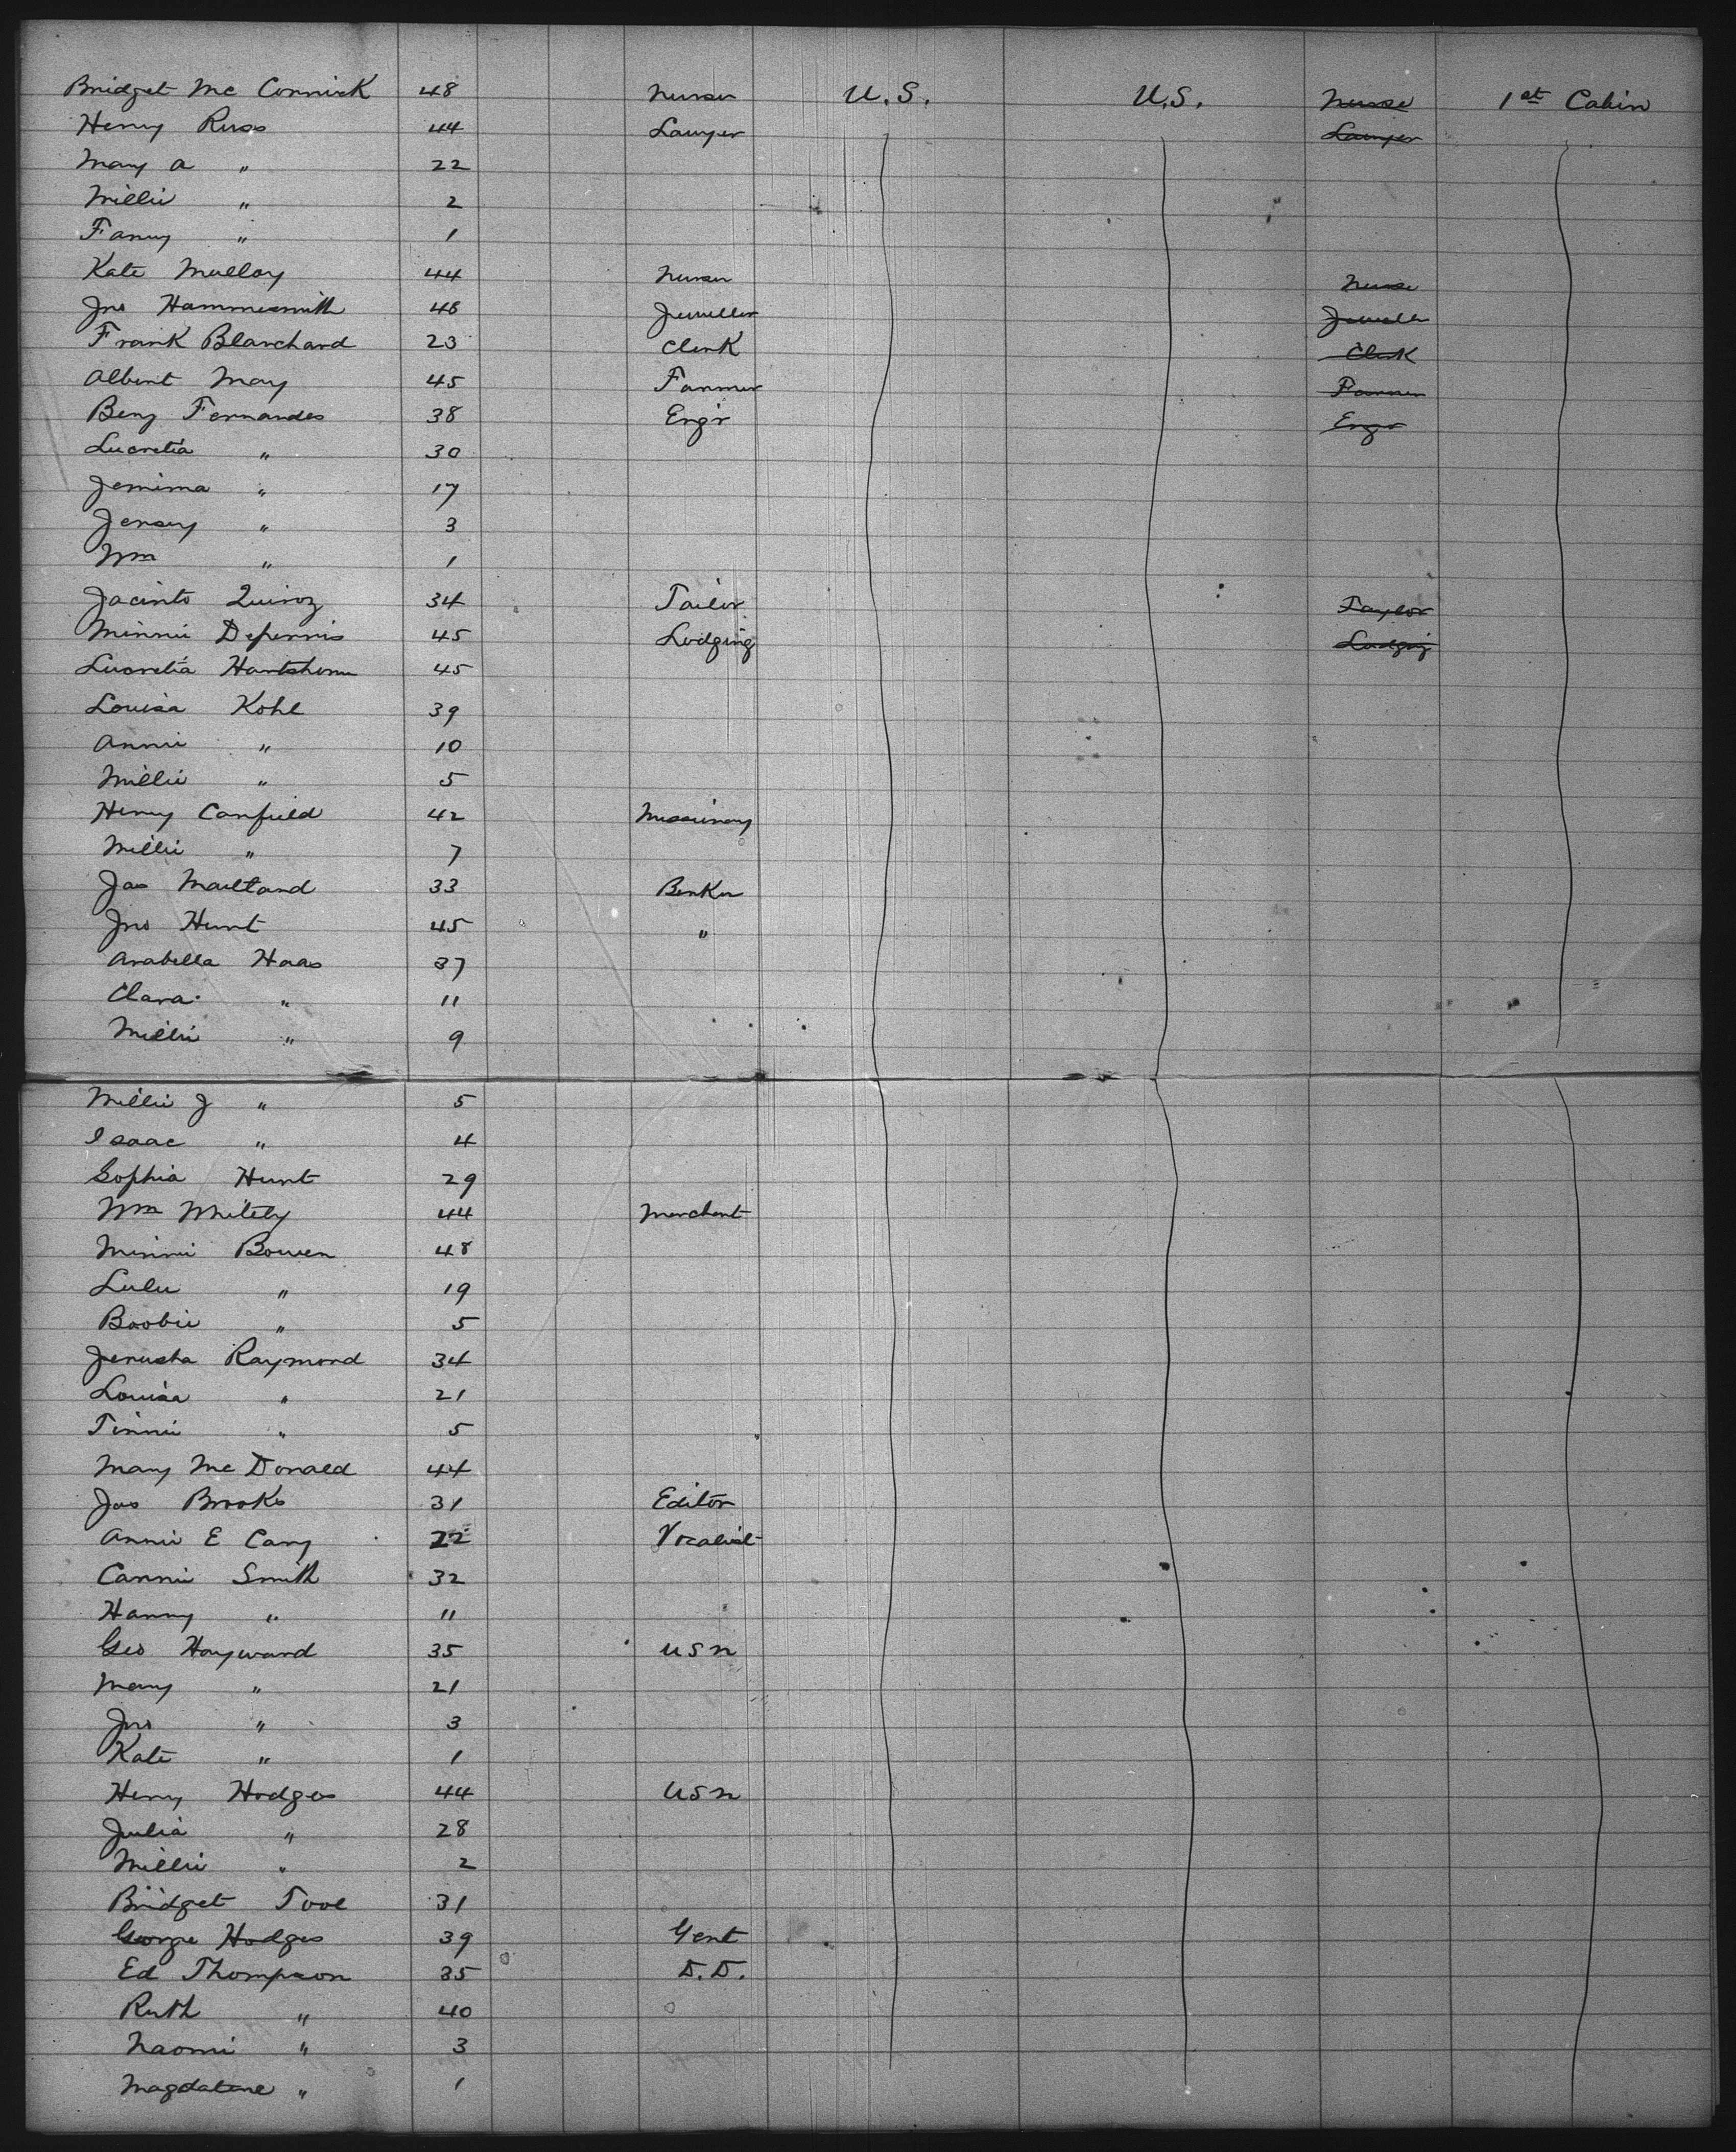 Bridget Mc Cormick 48 Nurse U.S. U.S. Nurse 1st Cabin
Henry Russ 44 Lawyer Lawyer
Mary A " 22
Millie " 2
Fanny " 1
Kate Mulloy 44 Nurse Nurse
Jno Hammesmith 48 Jeweller Jeweller
Frank Blanchard 23 Clerk Clerk
Albert May 45 Farmer Farmer
Benj Fernandes 38 Eng'r Engr
Lucretia " 30
Jemima " 17
Jersey " 3
Wm " 1
Jacinto Quiroz 34 Tailor Taylor
Minnie 45 Lodging Lodging
Lucretia Hartshorn 45
Louisa Kohl 39
Annie " 10
Millie " 5
Henry Canfield 42 Missionary
Millie " 7
Jas Maitland 33 Banker
Jno Hunt 45 "
Arabella Haas 37
Clara " 11
Millie " 9
Millie J " 5
Isaac " 4
Sophia Hunt 29
Wm Whitely 44 Merchant
Minnie Bowen 48
Lulu " 19
Boobie " 5
Jerusha Raymond 34
Louisa " 21
Tinnie " 5
Mary Mc Donald 44
Jas Brooks 31 Editor
Annie E Cary 22 Vocalist
Carrie Smith 32
Harry " 11
Geo Hayward 35 USN
Mary " 21
Jno " 3
Kate " 1
Henry Hodges 44 USN
Julia " 28
Millie " 2
Bridget Tool 31
George Hodges 39 Gent
Ed Thompson 35 D.D.
Ruth " 40
Naomi " 3
Magdalene " 1